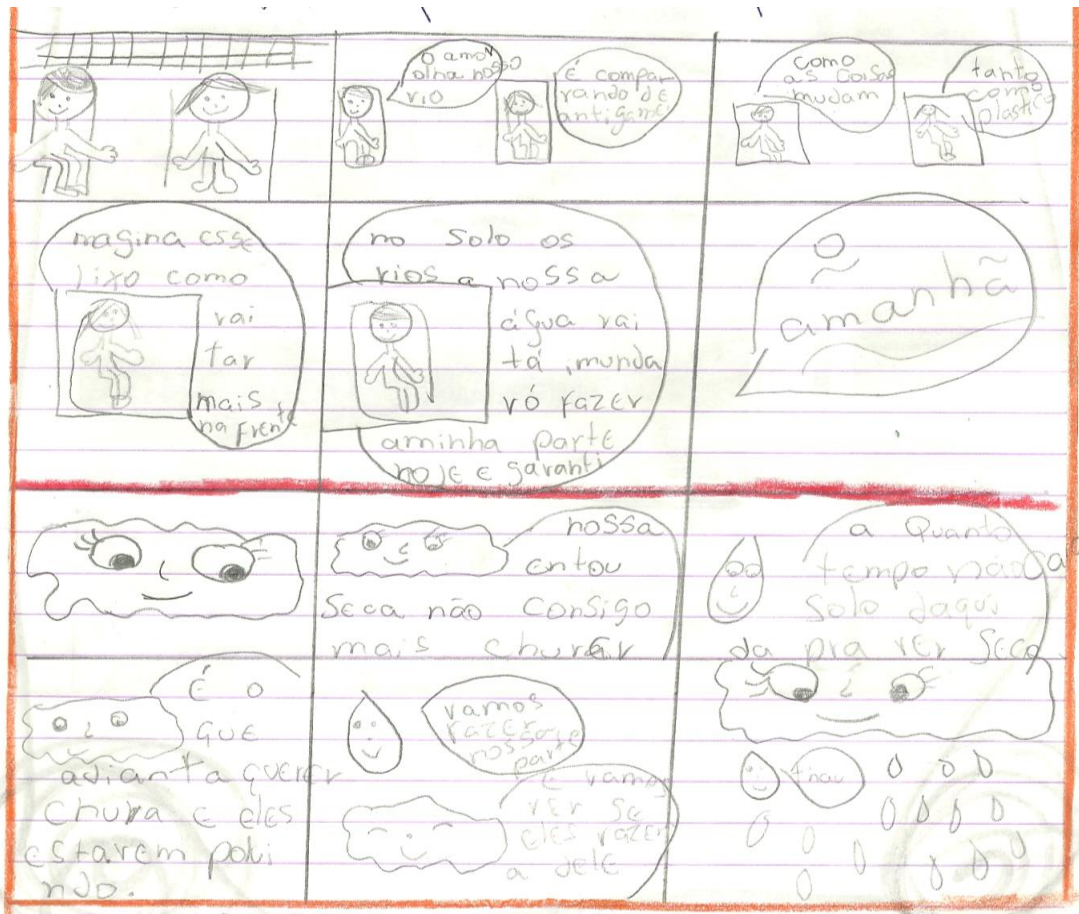 o amor
olha nosso
rio
É compar
rando de
antigame
como
as coisas
mudam
tanto
como
plastico
magina esse
lixo como
vai
tar
mais
na frente
no solo os
rios a nossa
água vai
tá imunda
vó fazer
aminha parte
hoje e garanti
o
amanhã
nossa
entou
seca não consigo
mais chuver
a Quanto
tempo não cai
solo daqui
da pra ver seco
É o
que
adianta querer
chuva e eles
estarem polui
ndo.
vamos
fazer
nossa
parte
e vamos
ver se
eles fazem
a dele
thau